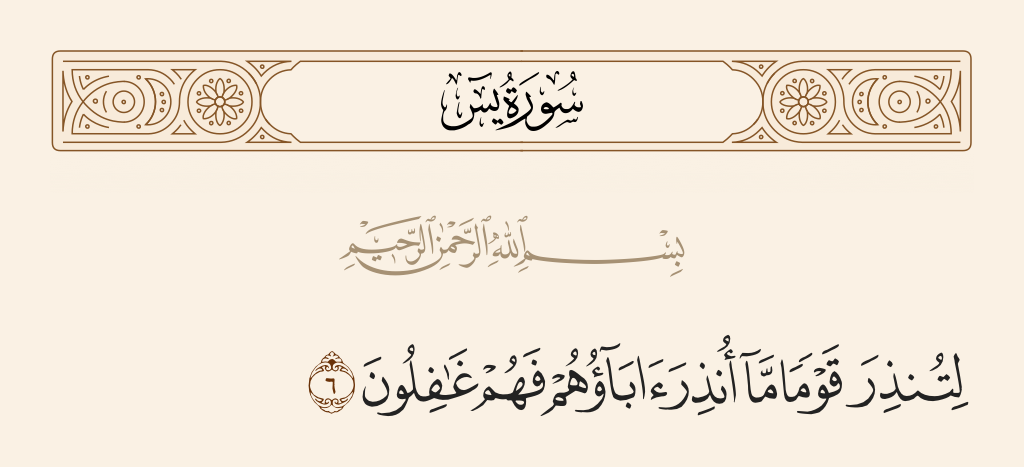 سُورَةُ يسٓ
بِسْمِ ٱللَّهِ ٱلرَّحْمَٰنِ ٱلرَّحِيمِ
لِتُنذِرَ قَوْمًا مَّآ أُنذِرَ ءَابَآؤُهُمْ فَهُمْ غَٰفِلُونَ ٦